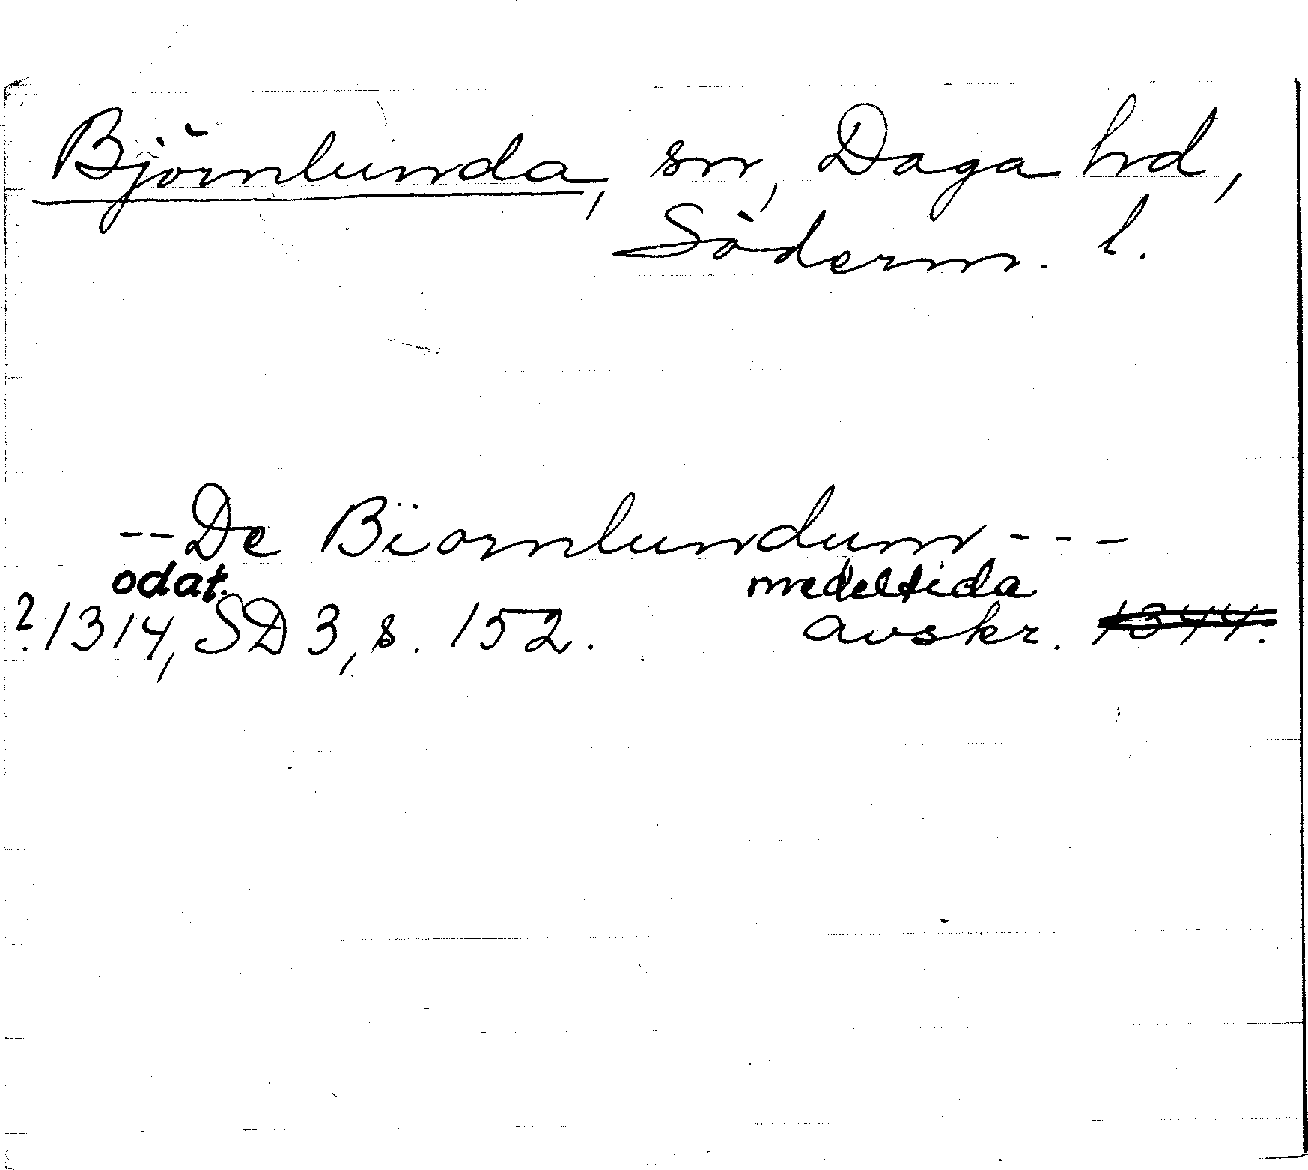 Björnlunda, sn, Daga hd,
Söderm. l.
-- De Biornlundum ---
odat. medeltida
? 1314, SD 3, s. 152. avskr. 1344.